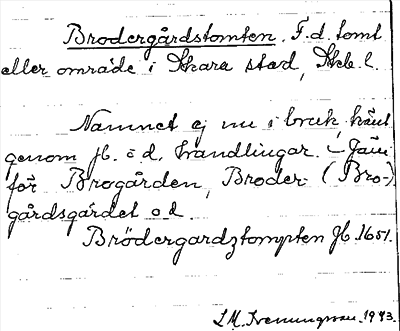 Brodergårdstomten. F.d. tomt
eller område i Skara stad, Skb. l.
Namnet ej nu i bruk, känt
genom Jb. o. d. handlingar. – Jäm
för Brogården, Broder- (Bro-)
gårdsgärdet o d.
Brödergardztompten Jb. 1651.
1943.